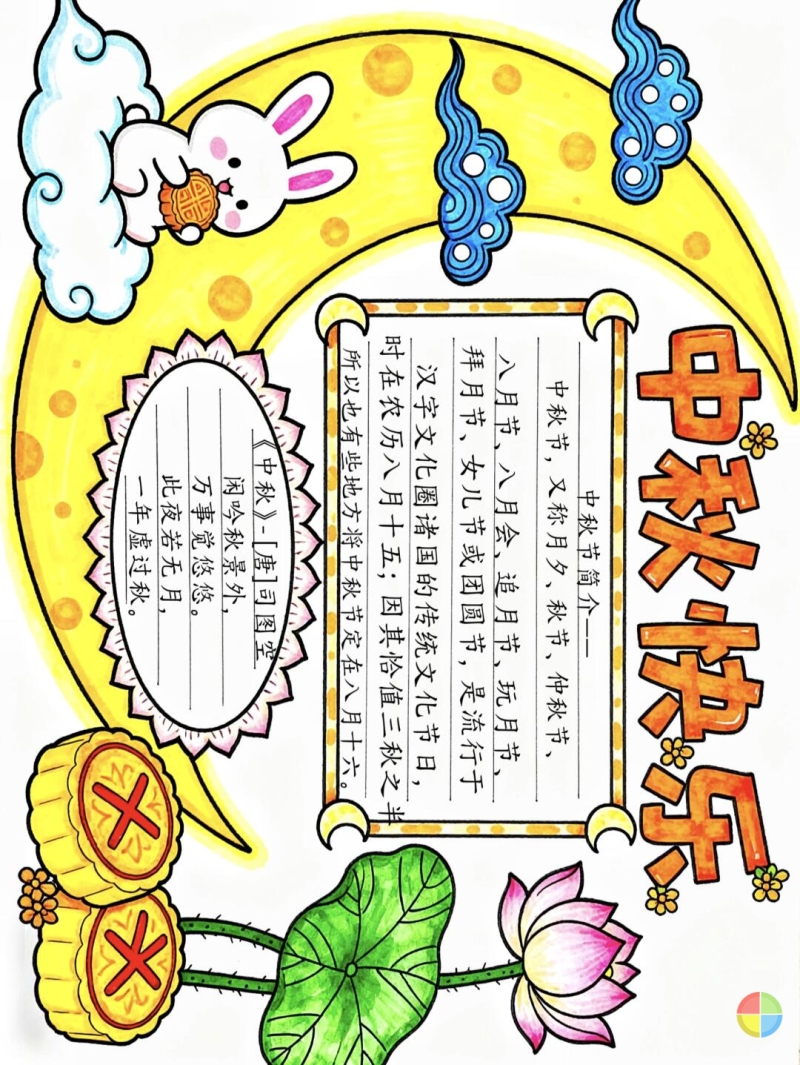 中秋快乐
中秋节简介——
中秋节,又称月夕、秋节、仲秋节、
八月节、八月会、追月节、玩月节、
拜月节、女儿节或团圆节,是流行于
汉字文化圈诸国的传统文化节日,
时在农历八月十五;因其恰值三秋之半
所以也有些地方将中秋节定在八月十六。
《中秋》-[唐]司图空
闲吟秋景外,
万事觉悠悠。
此夜若无月,
一年虚过秋。